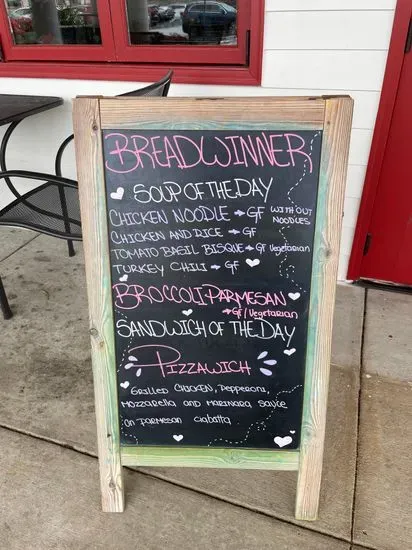 BREADWINNER
SOUP OF THE DAY
CHICKEN NOODLE → GF WITHOUT NOODLES
CHICKEN AND RICE → GF
TOMATO BASIL BISQUE → GF Vegetarian
TURKEY CHILI → GF
BROCCOLI PARMESAN
→ GF/Vegetarian
SANDWICH OF THE DAY
PIZZAWICH
GRILLED CHICKEN, PEPPERONI,
MOZZARELLA AND MARINARA SAUCE
ON PARMESAN CIABATTA